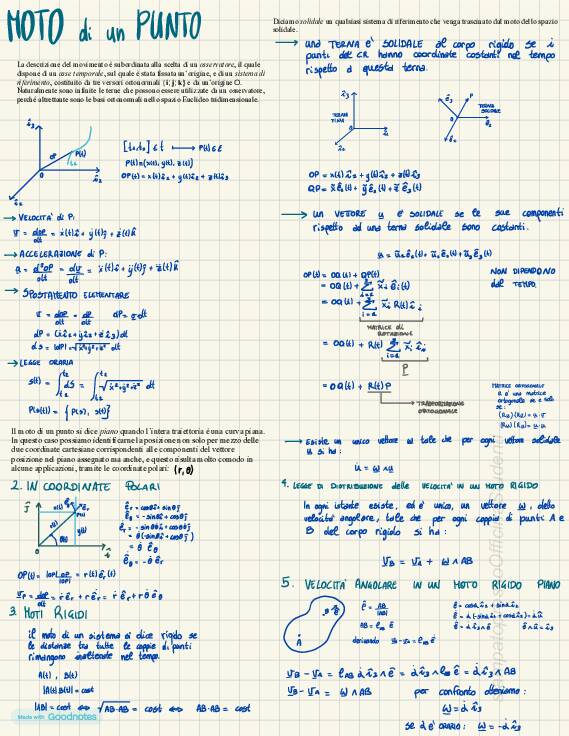 MOTO di un PUNTO
La descrizione del movimento è subordinata alla scelta di un osservatore, il quale
dispone di un asse temporale, sul quale è stata fissata un'origine, e di un sistema di
riferimento, costituito da tre versori ortonormali {i; j; k} e da un'origine O.
Naturalmente sono infinite le terne che possono essere utilizzate da un osservatore,
perché altrettante sono le basi ortonormali nello spazio Euclideo tridimensionale.
P(t)
[t₀,t₁] ∈ t → P(t) ∈ E
P(t)=(x(t), y(t), z(t))
OP(t) = x(t) î₁ + y(t) î₂ + z(t) î₃
→ VELOCITA' di P:
v = dOP/dt = ẋ(t)î + ẏ(t)ĵ + ż(t)k̂
→ ACCELERAZIONE di P:
a = d²OP/dt = dv/dt = ẍ(t)î + ÿ(t)ĵ + z̈(t)k̂
→ SPOSTAMENTO ELEMENTARE
v = dOP/dt = dP/dt dP = v dt
dP = (ẋî₁ + ẏî₂ + żî₃) dt
ds = |dP| = √ẋ²+ẏ²+ż² dt
→ LEGGE ORARIA
s(t) = ∫ ds = ∫ √ẋ²+ẏ²+ż² dt
P(s(t)) = { P(s), s(t) }
Il moto di un punto si dice piano quando l'intera traiettoria è una curva piana.
In questo caso possiamo identificarne la posizione non solo per mezzo delle
due coordinate cartesiane corrispondenti alle componenti del vettore
posizione nel piano assegnato ma anche, e questo risulta molto comodo in
alcune applicazioni, tramite le coordinate polari: (r, θ)
2. IN COORDINATE POLARI
OP(t) = |OP| OP/|OP| = r(t) ê_r(t)
v_P = dOP/dt = ṙ ê_r + r ê_r = ṙ ê_r + r θ̇ ê_θ
3. MOTI RIGIDI
il moto di un sistema si dice rigido se
le distanze tra tutte le coppie di punti
rimangono inalterate nel tempo.
A(t) , B(t)
|A(t)B(t)| = cost
|AB| = cost ⇔ √AB·AB = cost ⇔ AB·AB = cost
Made with Goodnotes
Diciamo solidale un qualsiasi sistema di riferimento che venga trascinato dal moto dello spazio
solidale.
→ una TERNA e' SOLIDALE al corpo rigido se i
punti del CR hanno coordinate costanti nel tempo
rispetto a questa terna.
TERNA
FISSA
TERNA
SOLIDALE
OP = x(t) î₁ + y(t) î₂ + z(t) î₃
QP = x̄ ê₁(t) + ȳ ê₂(t) + z̄ ê₃(t)
→ UN VETTORE u e' SOLIDALE se le sue componenti
rispetto ad una terna solidale sono costanti.
u = ū₁ ê₁(t) + ū₂ ê₂(t) + ū₃ ê₃(t)
OP(t) = OQ(t) + QP(t)
NON DIPENDONO
dal TEMPO
= OQ(t) + Σ x̄ᵢ êᵢ(t)
= OQ(t) + Σ x̄ᵢ R(t) îᵢ
MATRICE di
ROTAZIONE
= OQ(t) + R(t) Σ x̄ᵢ îᵢ
P
= OQ(t) + R(t) P
TRASFORMAZIONE
ORTOGONALE
MATRICE ORTOGONALE
→ Esiste un unico vettore ω tale che per ogni vettore solidale
u si ha:
u̇ = ω ∧ u
4. LEGGE di DISTRIBUZIONE delle VELOCITA' IN UN MOTO RIGIDO
In ogni istante esiste, ed e' unico, un vettore ω, detto
velocita' angolare, tale che per ogni coppia di punti A e
B del corpo rigido si ha:
v_B = v_A + ω ∧ AB
5. VELOCITA' ANGOLARE IN UN MOTO RIGIDO PIANO
A
B
ê = AB/|AB|
derivando
v_B − v_A = l_AB α̇ î₃ ∧ ê = α̇ î₃ ∧ l_AB ê = α̇ î₃ ∧ AB
v_B − v_A = ω ∧ AB per confronto otteniamo:
ω = α̇ î₃
se α e' ORARIO: ω = −α̇ î₃